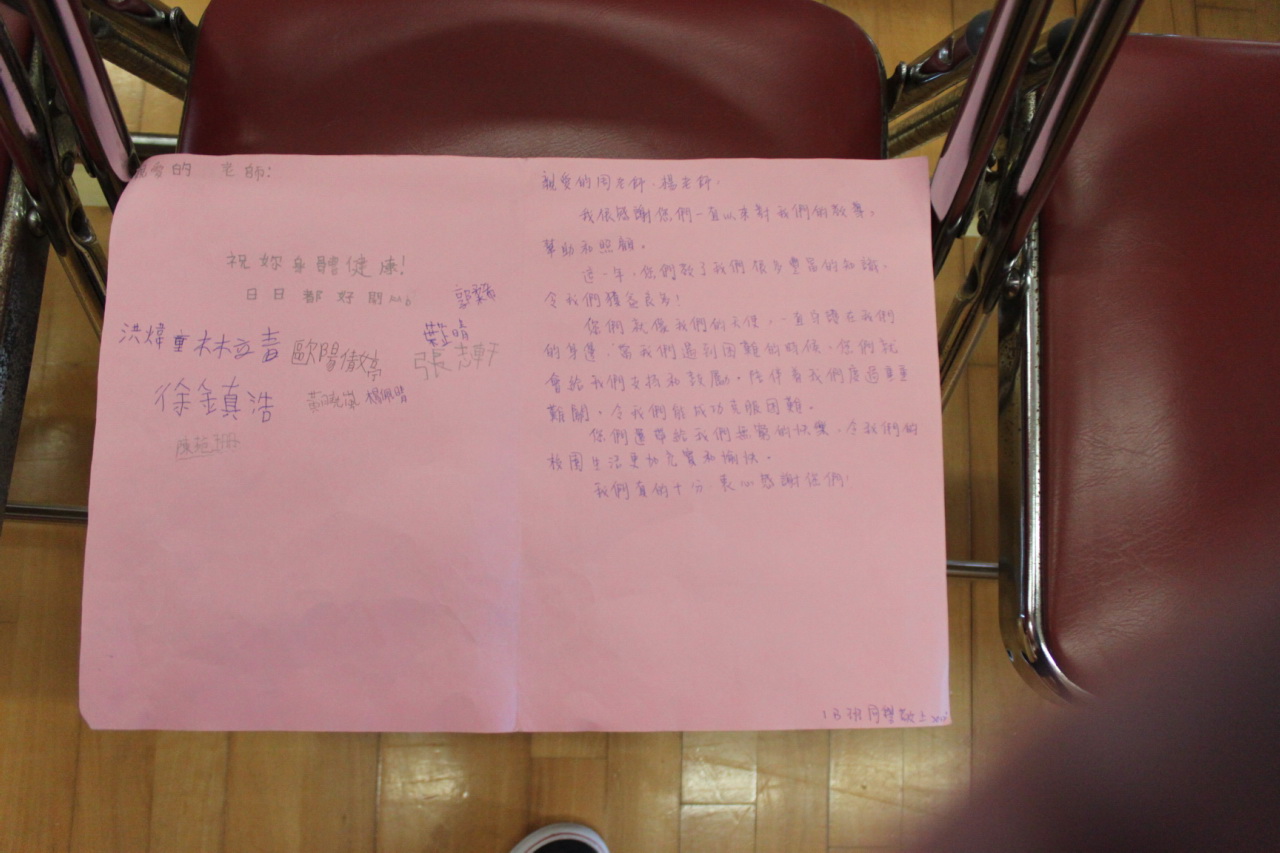 親愛的 老師:
祝妳身體健康!
日日都好開心。
洪煒重 林立青 歐陽倩婷 張志軒
徐鎮浩 楊佩晴
親愛的周老師、楊老師:
我很感謝您們一直以來對我們的教導、
幫助和照顧。
這一年,您們教了我們很多豐富的知識,
令我們獲益良多!
您們就像我們的天使,一直守護在我們
的身邊,當我們遇到困難的時候,您們就
會給我們支持和鼓勵,陪伴着我們度過重重
難關,令我們能成功克服困難。
您們還帶給我們無窮的快樂,令我們的
校園生活更加充實和愉快。
我們真的十分衷心感謝您們!
班同學敬上